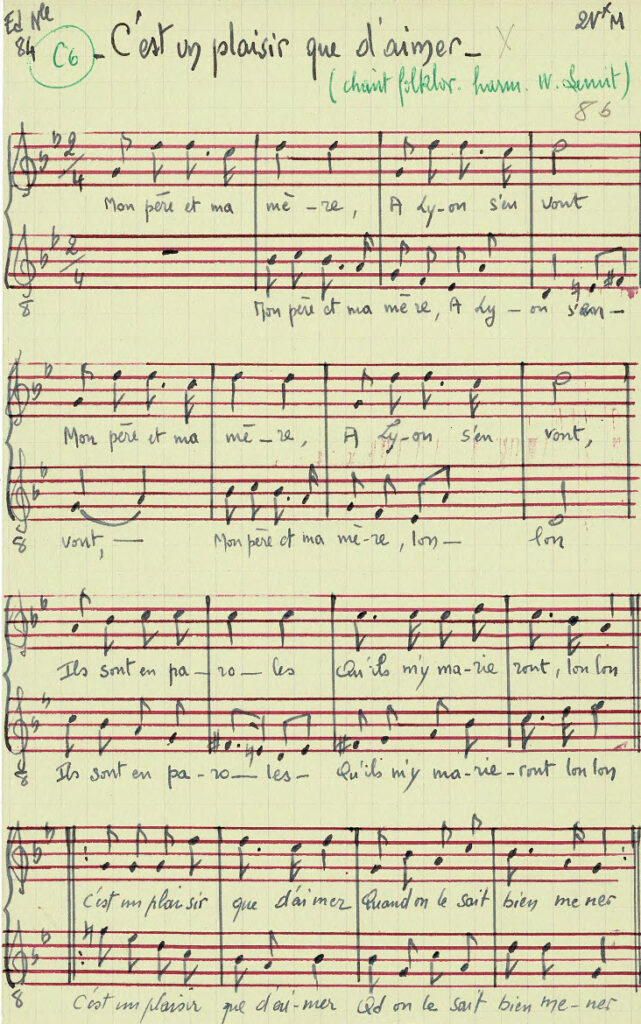 Ed Nlle
84
C6
- C'est un plaisir que d'aimer -
2Vx M
(chant folklor. harm. W. Lemit)
86
2/4
Mon père et ma mè-re, A Ly-on s'en vont
2/4
8
Mon père et ma mère, A Ly-on s'en-
Mon père et ma mè-re, A Ly-on s'en vont,
8
vont,- Mon père et ma mè-re, lon- lon
Ils sont en pa-ro-les Qu'ils m'y ma-rie ront, lon lon
8
Ils sont en pa-ro-les- Qu'ils m'y ma-rie-ront lon lon
C'est un plaisir que d'aimer Quand on le sait bien me ner
8
C'est un plaisir que d'ai-mer Qd on le sait bien me-ner